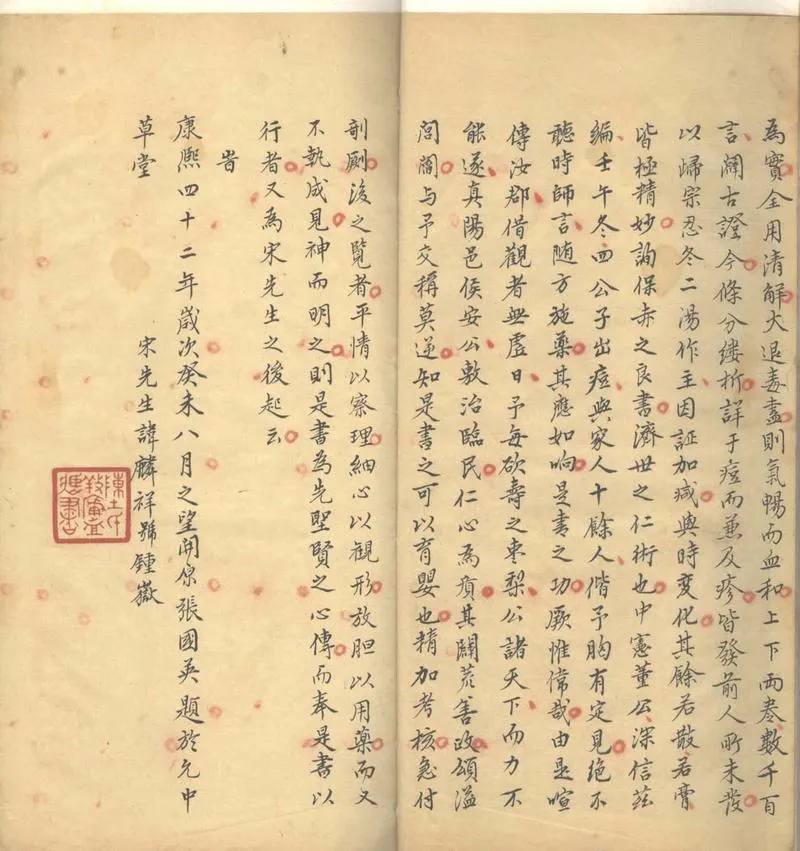 為實全用清解大退毒盡則氣暢而血和上下兩卷數千百
言闡古證今條分縷折詳于痘而兼及疹皆發前人所未發
以歸宗忍冬二湯作主因証加减與時變化其餘若散若膏
皆極精妙詢保赤之良書濟世之仁術也中憲董公深信茲
編壬午冬四公子出痘與家人十餘人偕予胸有定見絶不
聽時師言随方施藥其應如响是書之功厥惟偉哉由是喧
傳汝郡借觀者無虚日予每欲壽之枣梨公諸天下而力不
能遂真陽邑侯安公敷治臨民仁心為質其闢荒善政頌溢
閭閻与予交稱莫逆知是書之可以育嬰也精加考核急付
剞劂後之覧者平情以察理細心以觀形放胆以用藥而又
不執成見神而明之則是書為先聖賢之心傳而奉是書以
行者又為宋先生之後起云
旹
康熙四十二年歲次癸未八月之望開原張國英題於允中
草堂
宋先生諱麟祥號鍾嶽